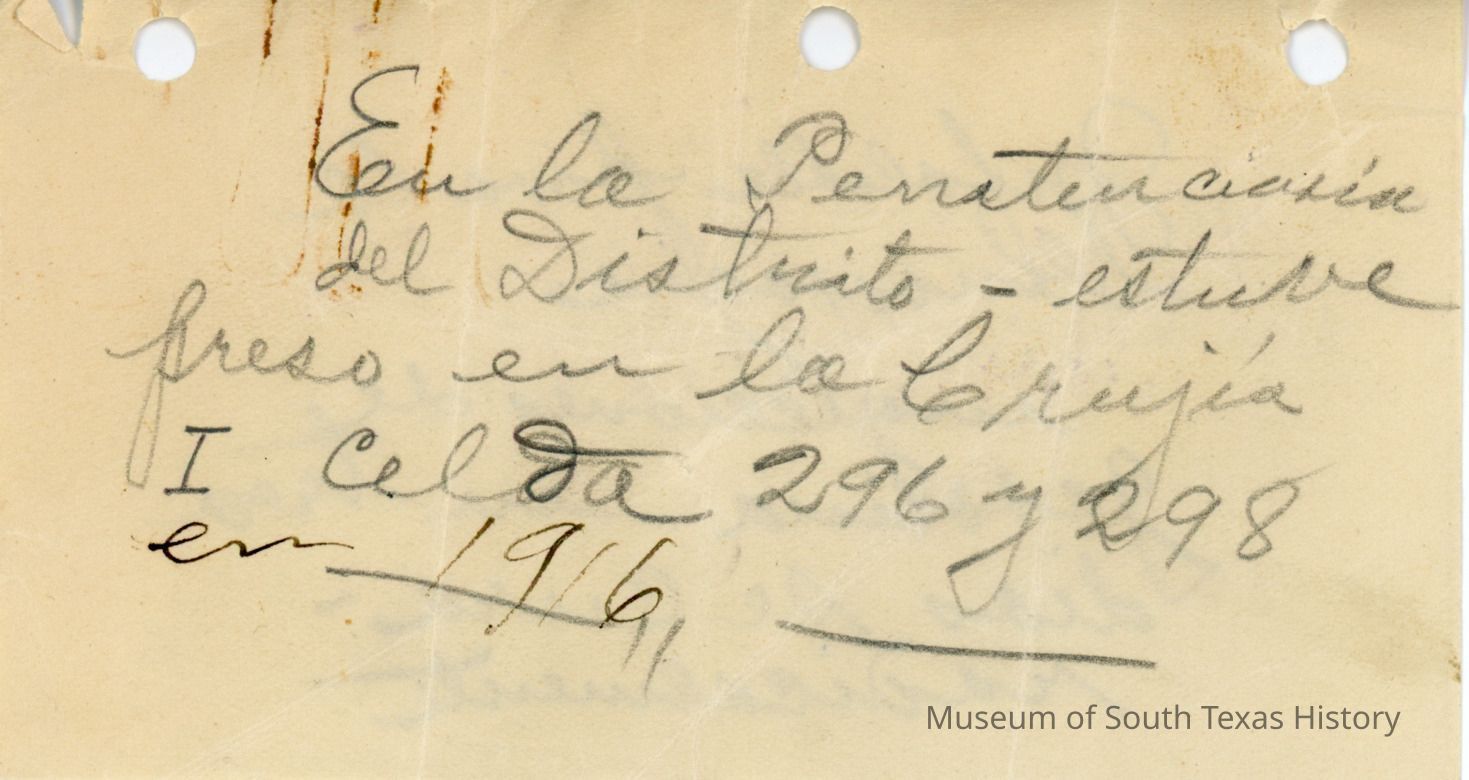 En la Penitenciaría
del Distrito - estuve
preso en la Crujía
I Celda 296 y 298
en 1916
Museum of South Texas History